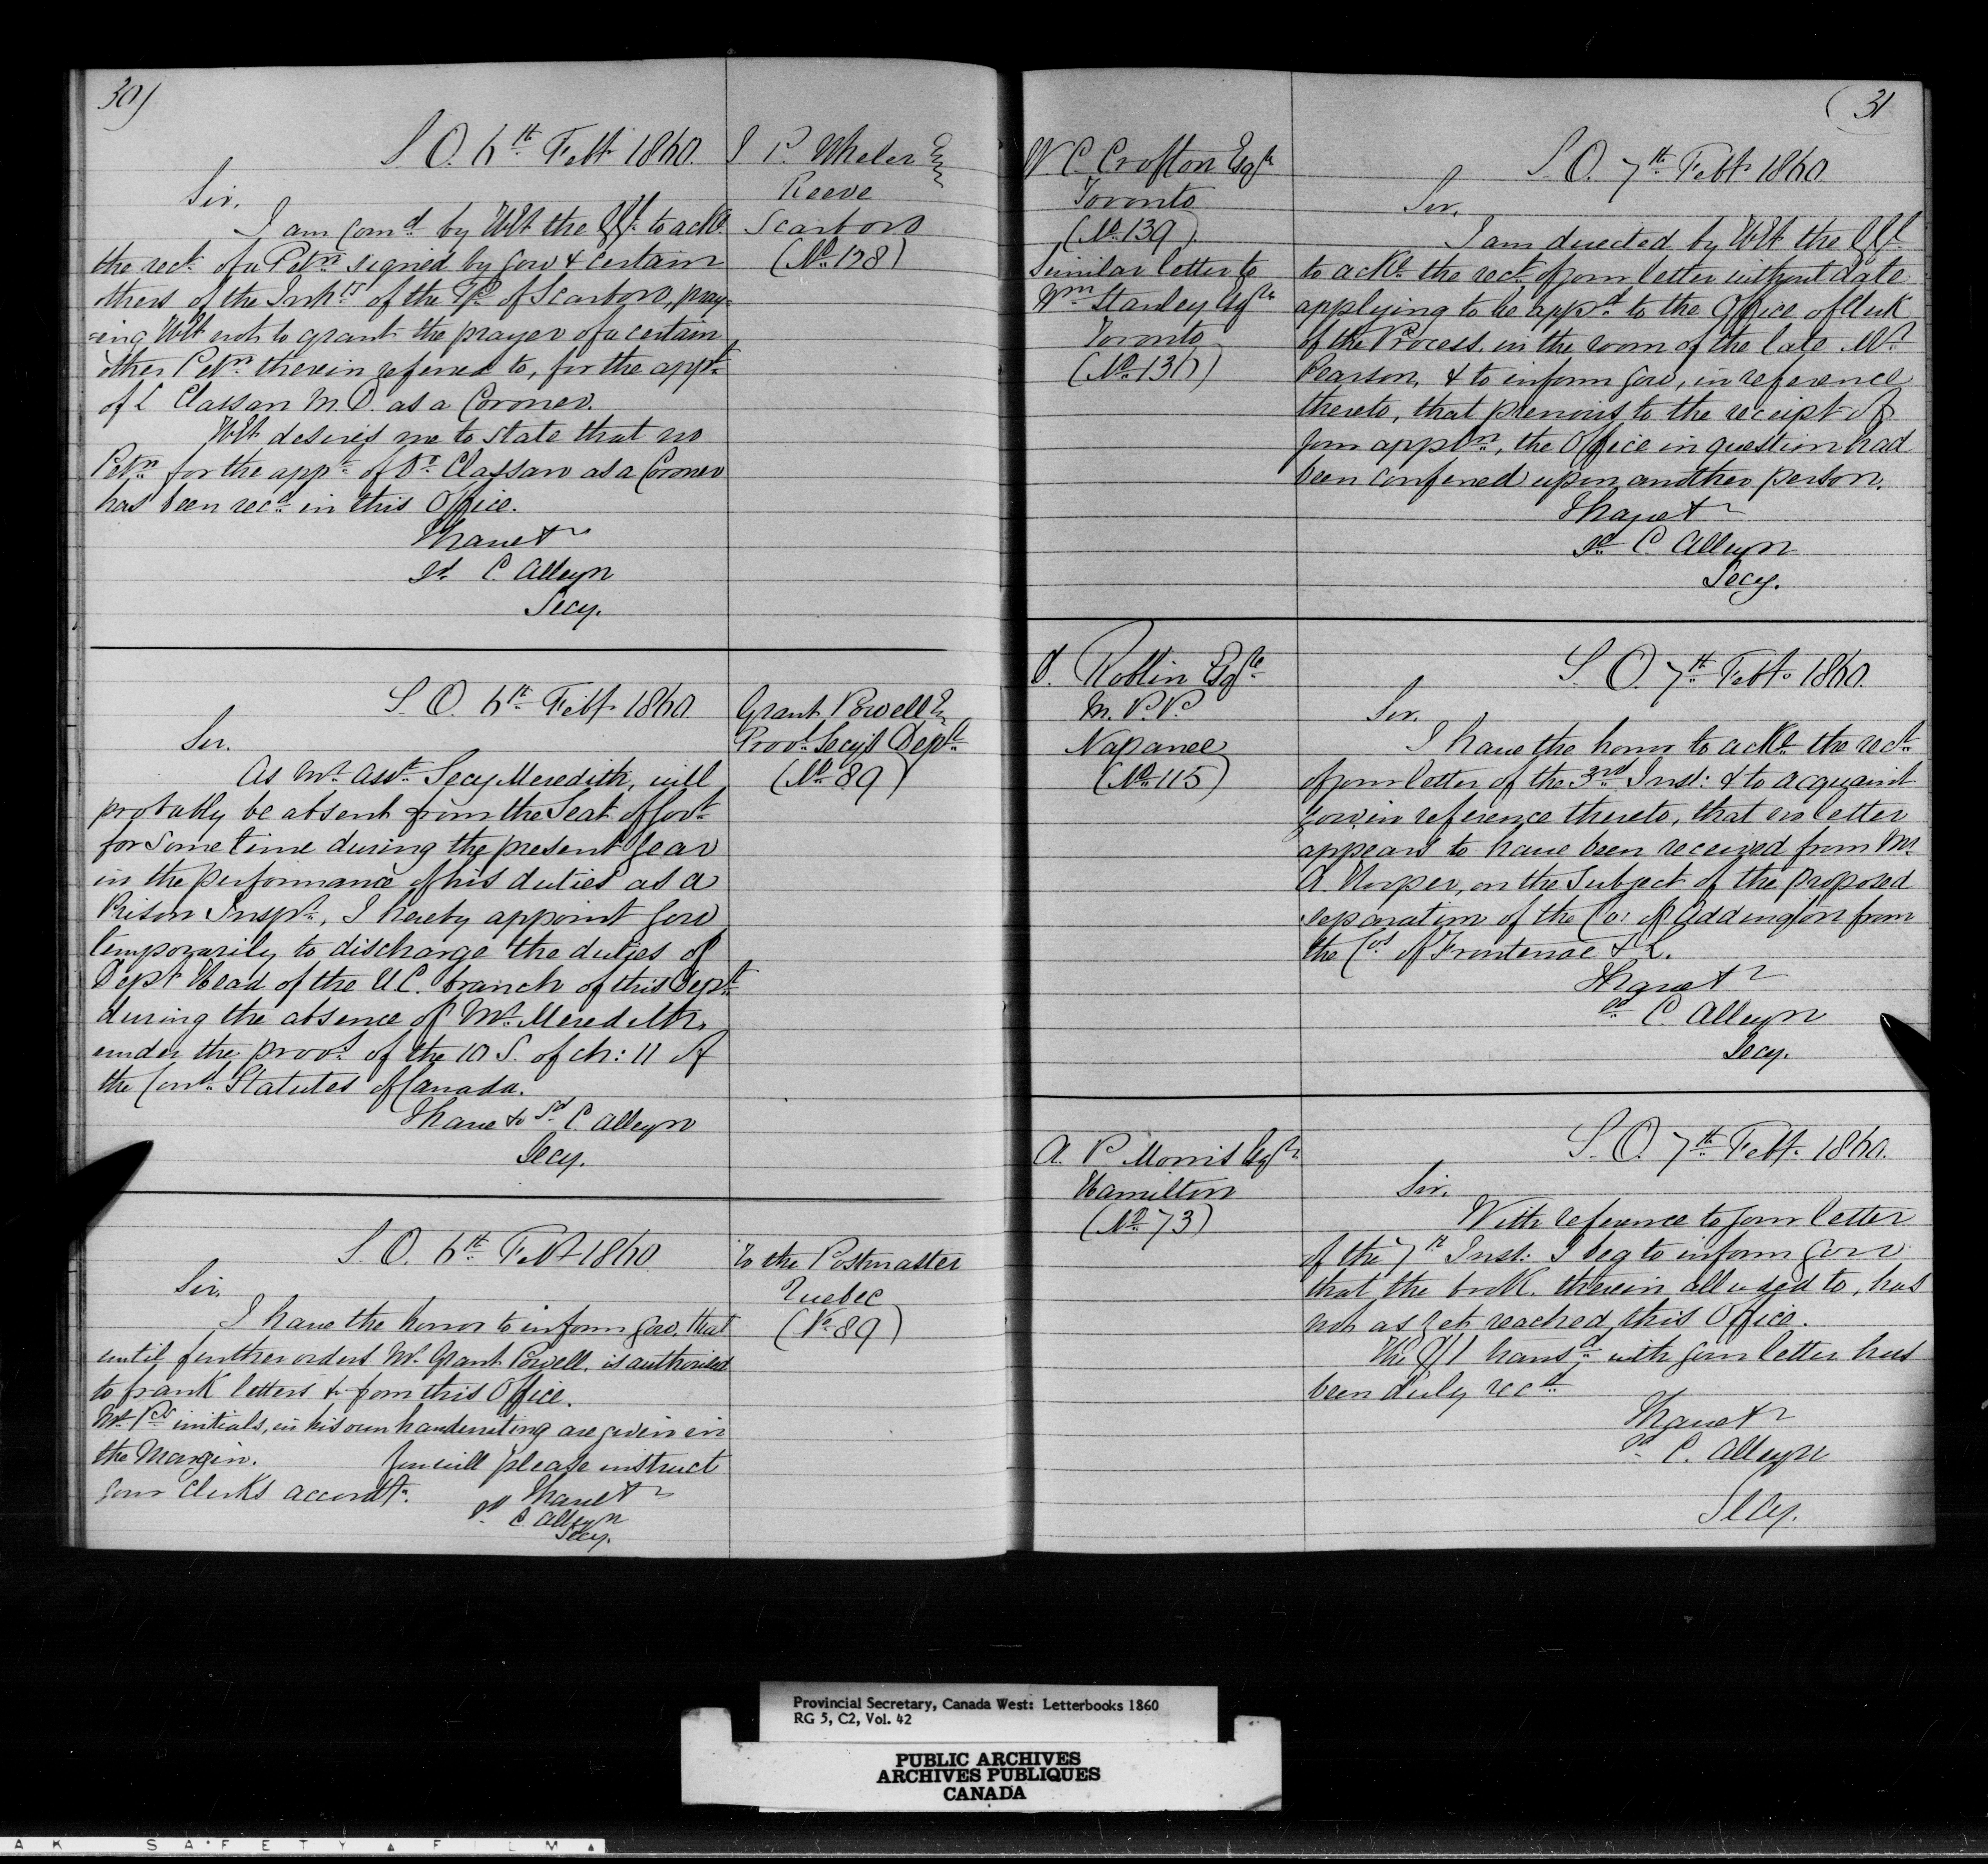 30)
S. O. 6th Feby 1860.
J P. Wheler Esq
Reeve
Scarboro
(No 128)
Sir,
I am Comd by H E the G G to ackl
the rect of a Petn signed by you & certain
others of the Inhts of the Tp of Scarboro, pray-
=ing H E not to grant the prayer of a certain
other Petn therein referred to, for the appt
of L Classan M.D. as a Coroner.
H E desires me to state that no
Petn for the appt of Dr Classan as a Coroner
has been recd in this Office.
I have &
sd C. Alleyn
Secy.
S. O. 6th Feby 1860.
Grant Powell E
Provl Secy's Dept
(No 89)
Sir.
As Mr Asst. Secy Meredith, will
probably be absent from the Seat of Govt
for some time during the present year
in the performance of his duties as a
Prison Inspr, I hereby appoint you
temporarily to discharge the duties of
Depy Head of the U.C. branch of this Dept
during the absence of Mr Meredith,
under the provs of the 10 S. of ch: 11 of
the Cond Statutes of Canada.
I have & Sd C. Alleyn
Secy.
S. O. 6th Feby 1860
To the Postmaster
Quebec
(No 89)
Sir,
I have the honor to inform you, that
until further orders Mr. Grant Powell, is authorised
to frank letters &c from this Office.
Mr Ps initials, in his own handwriting are given in
the Margin. You will please instruct
your Clerks accordy.
I have &
sd C. Alleyn
Secy.
(31
W C. Crofton Esqr
Toronto
(No 139)
Similar letter to
Wm Stanley Esqr
Toronto
(No 136)
S. O. 7th Feby 1860.
Sir,
I am directed by H E the G G
to ackl the rect of your letter without date
applying to be appd to the Office of Clerk
of the Process, in the room of the late Mr
Pearson, & to inform you, in reference
thereto, that previous to the receipt of
your appln, the Office in question had
been conferred upon another person.
I have &
sd C. Alleyn
Secy.
D. Roblin Esqre
M. P. P.
Napanee
(No 115)
S. O. 7th Feby 1860.
Sir.
I have the honor to ackl the rect
of your letter of the 3rd Inst: & to acquaint
you, in reference thereto, that no letter
appears to have been received from Mr
A Hooper, on the Subject of the proposed
separation of the Co: of Addington from
the Cos of Frontenac & L.
I have &
sd C. Alleyn
Secy.
A. P Morris Esqr
Hamilton
(No 73)
S. O. 7th Feby 1860.
Sir.
With reference to your letter
of the 7th Inst: I beg to inform you
that the book therein alluded to, has
not as yet reached this Office.
The $1 transd with your letter has
been duly recd
I have &
sd C. Alleyn
Secy.
Provincial Secretary, Canada West: Letterbooks 1860
RG 5, C2, Vol. 42
PUBLIC ARCHIVES
ARCHIVES PUBLIQUES
CANADA
A K SAFETY FILM